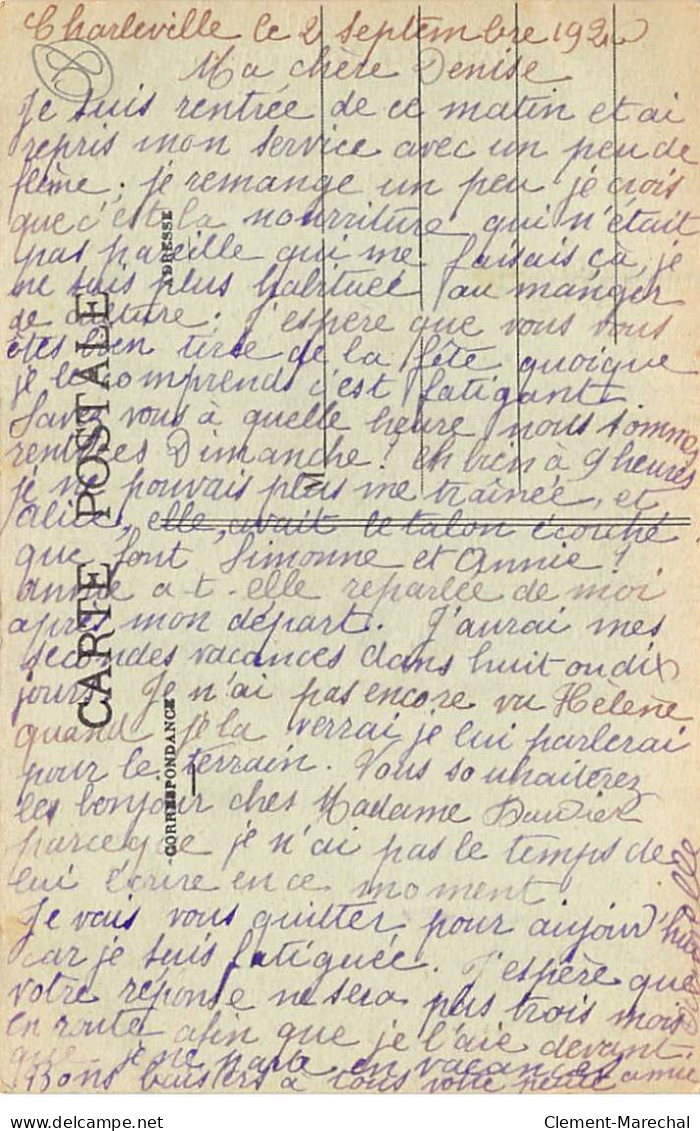 Charleville le 2 septembre 192
Ma chère Denise
Je suis rentrée de ce matin et ai
repris mon service avec un peu de
flème; je remange un peu je crois
que c'est la nourriture qui n'était
pas pareille qui me faisais çà, je
ne suis plus habituée au manger
de culture. J'espère que vous vous
êtes bien tirée de la fête quoique
je le comprends c'est fatigant
Savez vous à quelle heure nous sommes
rentrées Dimanche? eh bien à 9 heures
je ne pouvais plus me trainée, et,
Alice, elle, avait le talon écorché
que font Simonne et Annie!
Annie a-t-elle reparlée de moi
après mon départ. J'aurai mes
secondes vacances dans huit ou dix
jours. Je n'ai pas encore vu Hélène
quand je la verrai je lui parlerai
pour le terrain. Vous souhaiterez
les bonjour ches Madame
parceque je n'ai pas le temps de
lui écrire en ce moment
Je vais vous quitter pour aujourd'hui
car je suis fatiguée. J'espère que
votre réponse ne sera pas trois mois
en route afin que je l'aie devant
que je ne parte en vacances
Bons baisers à tous votre petite amie
CARTE POSTALE
CORRESPONDANCE
ADRESSE
M
Clement-Marechal